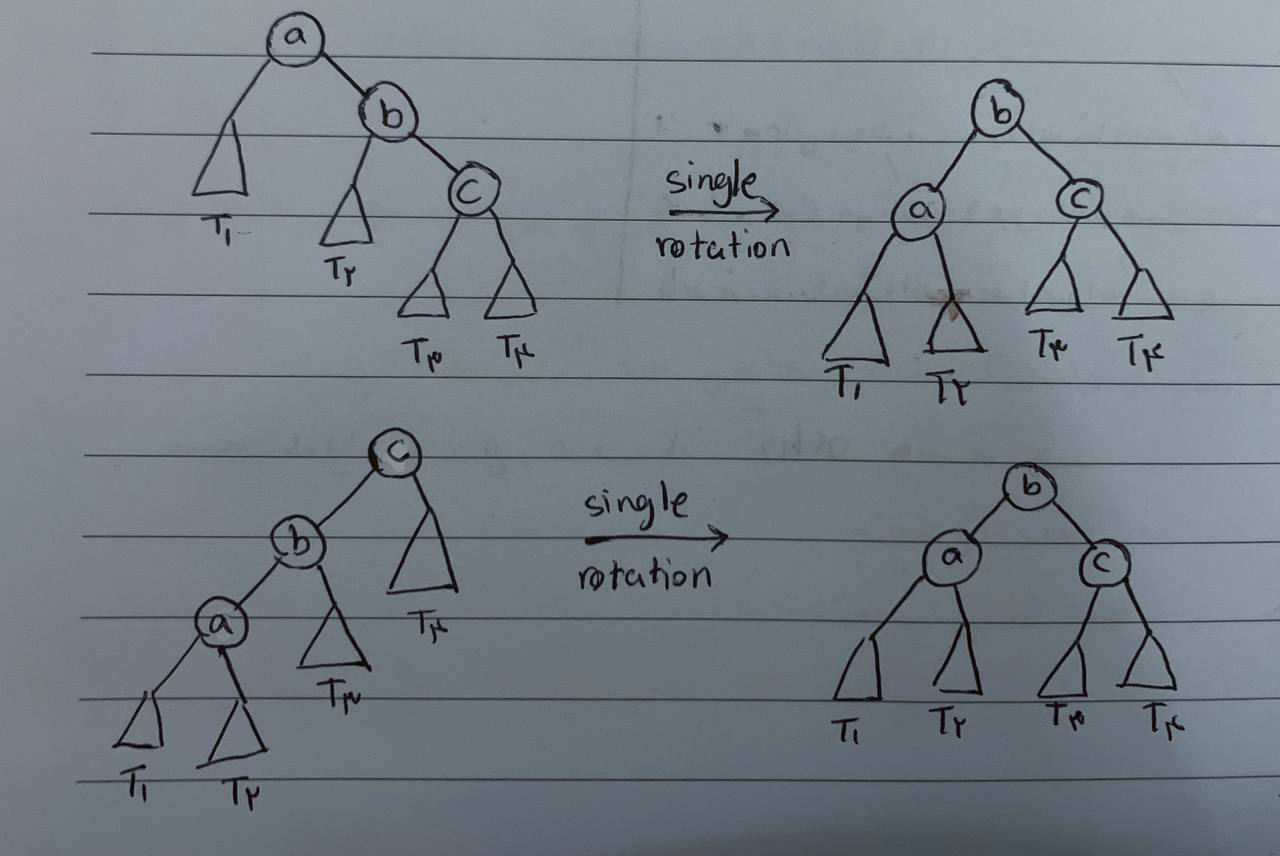 a
b
c
T۱
T۲
T۳ T۴
single
rotation
b
a c
T۱ T۲ T۳ T۴
c
b
a
T۴
T۳
T۱ T۲
single
rotation
b
a c
T۱ T۲ T۳ T۴